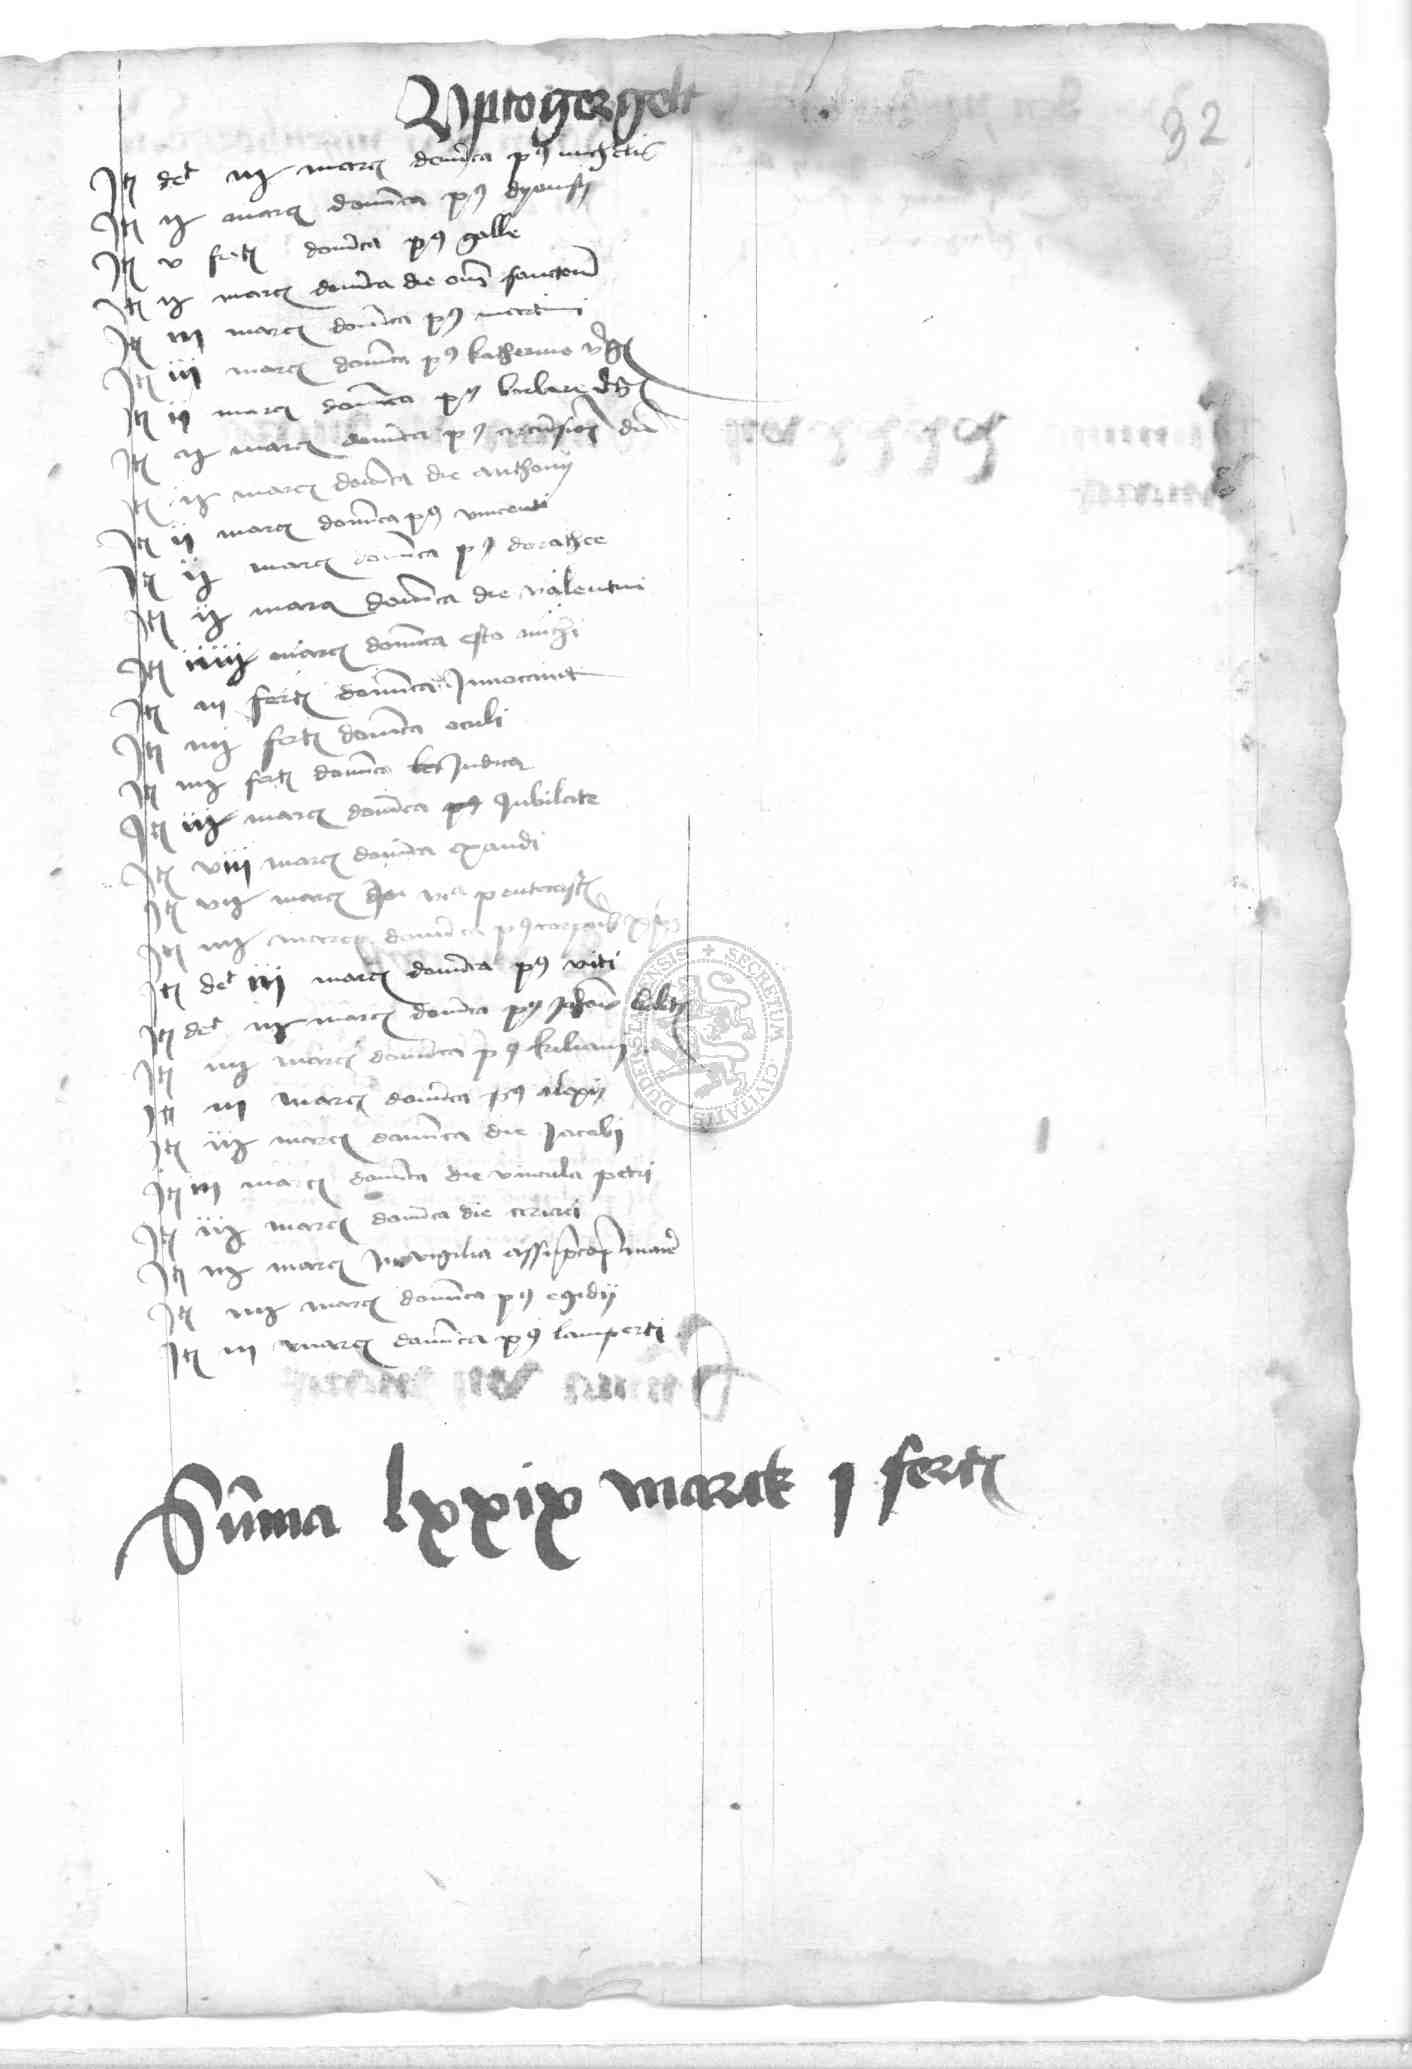 Uptogergelt
32
Itm det iij marc dominica post michelis
Itm ij marc dominica post dyonisij
Itm v fert dominica post galle
Itm ij marc dominica die omnium sanctorum
Itm iij marc dominica post martini
Itm iij marc dominica post katherine virginis
Itm ij marc dominica post barbare virginis
Itm ij marc dominica post circumcisionis domini
Itm ij marc dominica die anthonij
Itm ij marc dominica post vincenti
Itm ij marc dominica post dorathee
Itm ij marc dominica die valentini
Itm iiij marc dominica esto michi
Itm iij fert dominica Invocavit
Itm iij fert dominica oculi
Itm iij fert dominica Judica
Itm iij marc dominica Jubilate
Itm viij marc dominica exaudi
Itm vij marc pentecostes
Itm iij marc dominica post corporis christi
Itm det iij marc dominica post viti
Itm det iij marc dominica post Johannis baptiste
Itm iij marc dominica post kiliani
Itm iij marc dominica post alexij
Itm iij marc dominica die Jacobi
Itm iij marc dominica die vincula petri
Itm iij marc dominica die ciriaci
Itm iij marc In vigilia assumptionis marie
Itm iij marc dominica post egidij
Itm iij marc dominica post lamperti
SECRETUM CIVITATIS DUDERSTATENSIS
Summa lxxix marck j fert